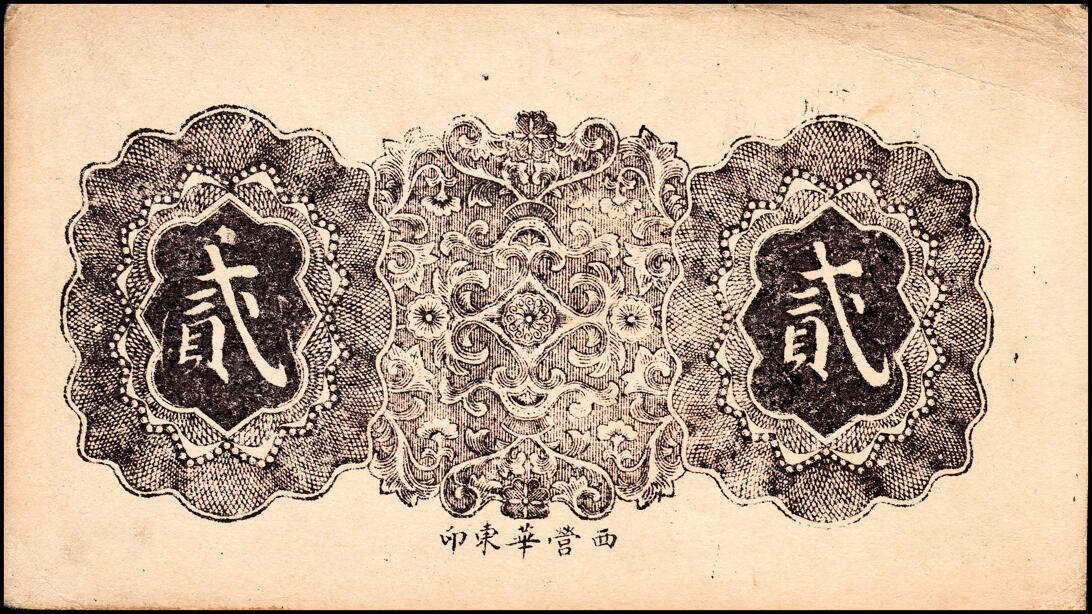 貳
貳
西營華東印